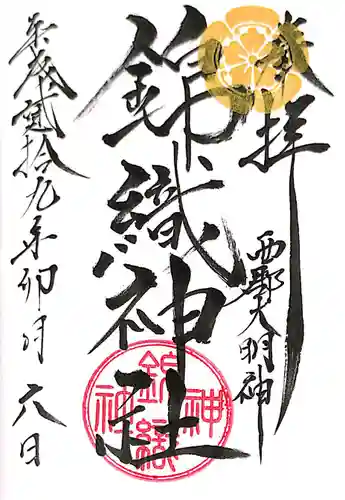 奉拝
西郷大明神
錦織神社
錦織神社
平成貮拾九年卯月六日